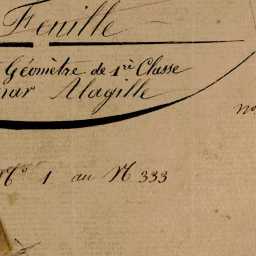 Feuille
Géomètre de 1re Classe
par Magille
No
No 1 au N 333